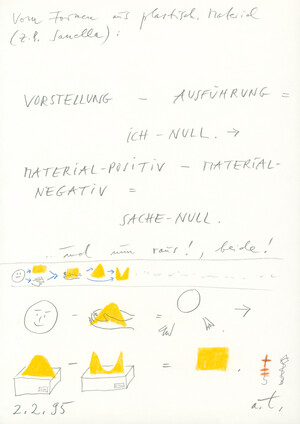 Vom Formen aus plastisch. Material
(z.B. Sanella):
VORSTELLUNG – AUSFÜHRUNG =
ICH-NULL. →
MATERIAL-POSITIV – MATERIAL-
NEGATIV =
SACHE-NULL.
...und nun raus!, beide!
2.2.95 a.t.